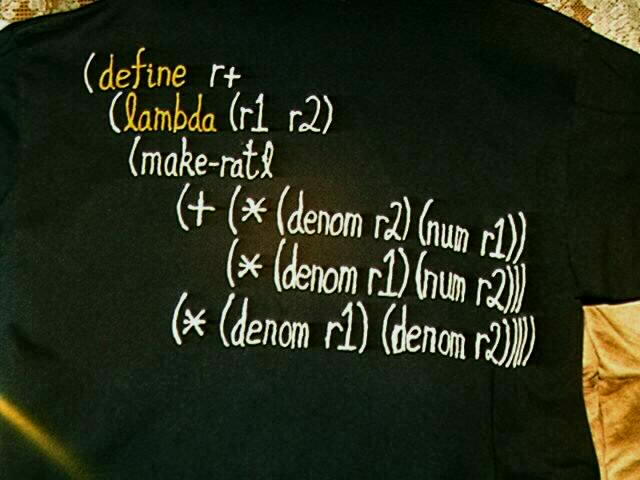 (define r+
(lambda (r1 r2)
(make-ratl
(+ (* (denom r2) (num r1))
(* (denom r1) (num r2)))
(* (denom r1) (denom r2)))))